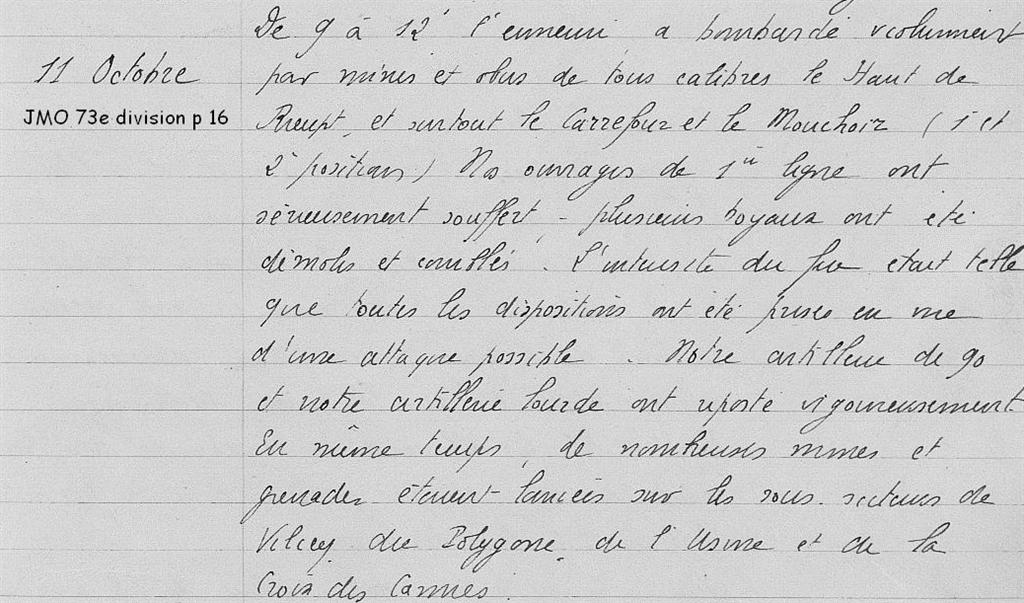 De 9 à 12h l'ennemi a bombardé violemment
11 Octobre
par mines et obus de tous calibres le Haut de
JMO 73e division p 16
Rieupt, et surtout le Carrefour et le Mouchoir (1e et
2e positions) Nos ouvrages de 1ère ligne ont
sérieusement souffert, - plusieurs boyaux ont été
démolis et comblés. L'intensité du feu était telle
que toutes les dispositions ont été prises en vue
d'une attaque possible. Notre artillerie de 90
et notre artillerie lourde ont riposté vigoureusement.
En même temps, de nombreuses mines et
grenades étaient lancées sur les sous-secteurs de
Vilcey du Polygone, de l'Usine et de la
Croix des Carmes.